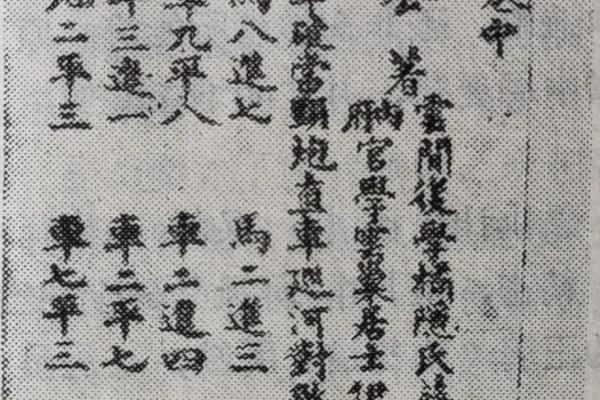 中
雲間後學橘隱民
著
官學雲巢居士
當頭炮直車巡河對
馬八進七　馬二進三
車九平八　車二進四
三進一　車二平七
二平三　車七平三